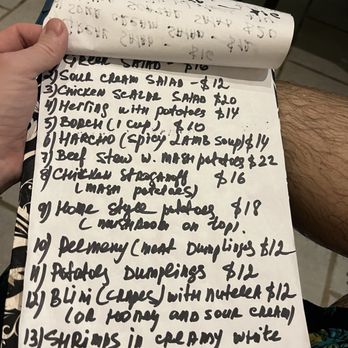 GREEK SALAD - $16
2) SOUR CREAM SALAD - $12
3) CHICKEN SEALAR SALAD $20
4) Herring with potatoes $14
5) BORCH (1 cup) $10
6) HARCHO (SPICY LAMB SOUP) $14
7) Beef stew w. MASH potatoes $22
8) CHICKEN STROGANOFF $16
(MASH potatoes)
9) Home style potatoes $18
(mushroom on top).
10) Pelmeny (meat Dumplings $12
11) Potatoes Dumplings $12
12) Blini (crapes) with nutella $12
(OR Honey AND SOUR CREAM)
13) SHRIMPS in CREAMY white